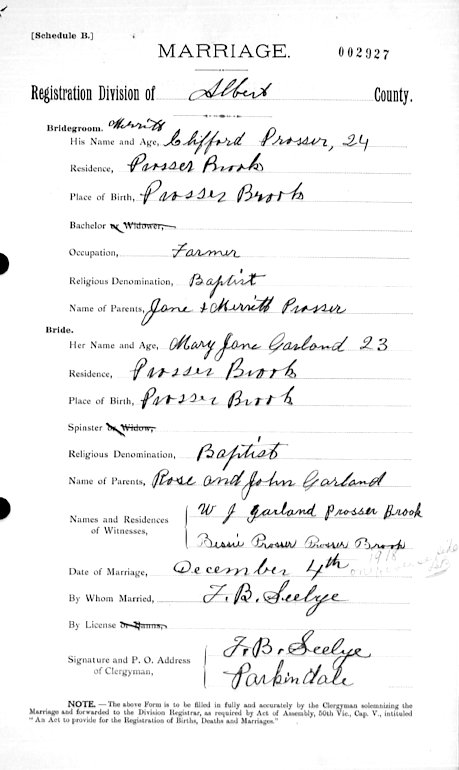 [Schedule B.]
MARRIAGE.
002927
Registration Division of Albert County.
Bridegroom. Merritt
His Name and Age, Clifford Prosser, 24
Residence, Prosser Brook
Place of Birth, Prosser Brook
Bachelor or Widower,
Occupation, Farmer
Religious Denomination, Baptist
Name of Parents, Jane & Merritt Prosser
Bride.
Her Name and Age, Mary Jane Garland 23
Residence, Prosser Brook
Place of Birth, Prosser Brook
Spinster or Widow,
Religious Denomination, Baptist
Name of Parents, Rose and John Garland
Names and Residences of Witnesses,
W J Garland Prosser Brook
Bessie Prosser Prosser Brook
Date of Marriage, December 4th
By Whom Married, F. B. Seelye
By License or Banns,
Signature and P. O. Address of Clergyman,
F. B. Seelye
Parkindale
NOTE. — The above Form is to be filled in fully and accurately by the Clergyman solemnizing the
Marriage and forwarded to the Division Registrar, as required by Act of Assembly, 50th Vic., Cap. V., intituled
"An Act to provide for the Registration of Births, Deaths and Marriages."